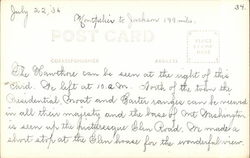 July 22, '36
Montpelier to Jackson 199 miles.
34.
POST CARD
CORRESPONDENCE
ADDRESS
The Hawthorne can be seen at the right of this
Card. We left at 10 a.m. North of the town the
Presidential Front and Carter ranges can be viewed
in all their majesty and the base of Mt Washington
is seen up the picturesque Glen Road. We made a
short stop at the Glen house for the wonderful view